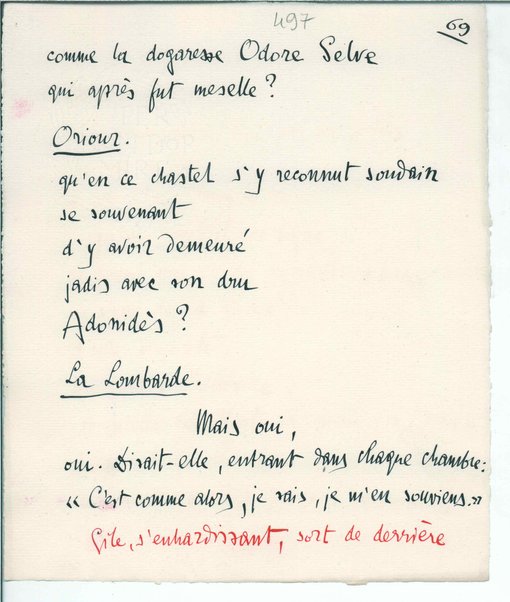 497
69
comme la dogaresse Odore Selve
qui après fut meselle ?
Oriour.
qu'en ce chastel s'y reconnut soudain
se souvenant
d'y avoir demeuré
jadis avec son dru
Adonidès ?
La Lombarde.
Mais oui,
oui. Disait-elle, entrant dans chaque chambre :
« C'est comme alors, je sais, je m'en souviens. »
Gile, s'enhardissant, sort de derrière